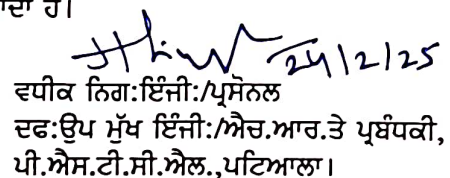 ਜਾਂਦਾ ਹੈ।
24/2/25
ਵਧੀਕ ਨਿਗ:ਇੰਜੀ:/ਪ੍ਰਸੋਨਲ
ਦਫ:ਉਪ ਮੁੱਖ ਇੰਜੀ:/ਐਚ.ਆਰ.ਤੇ ਪ੍ਰਬੰਧਕੀ,
ਪੀ.ਐਸ.ਟੀ.ਸੀ.ਐਲ.,ਪਟਿਆਲਾ।